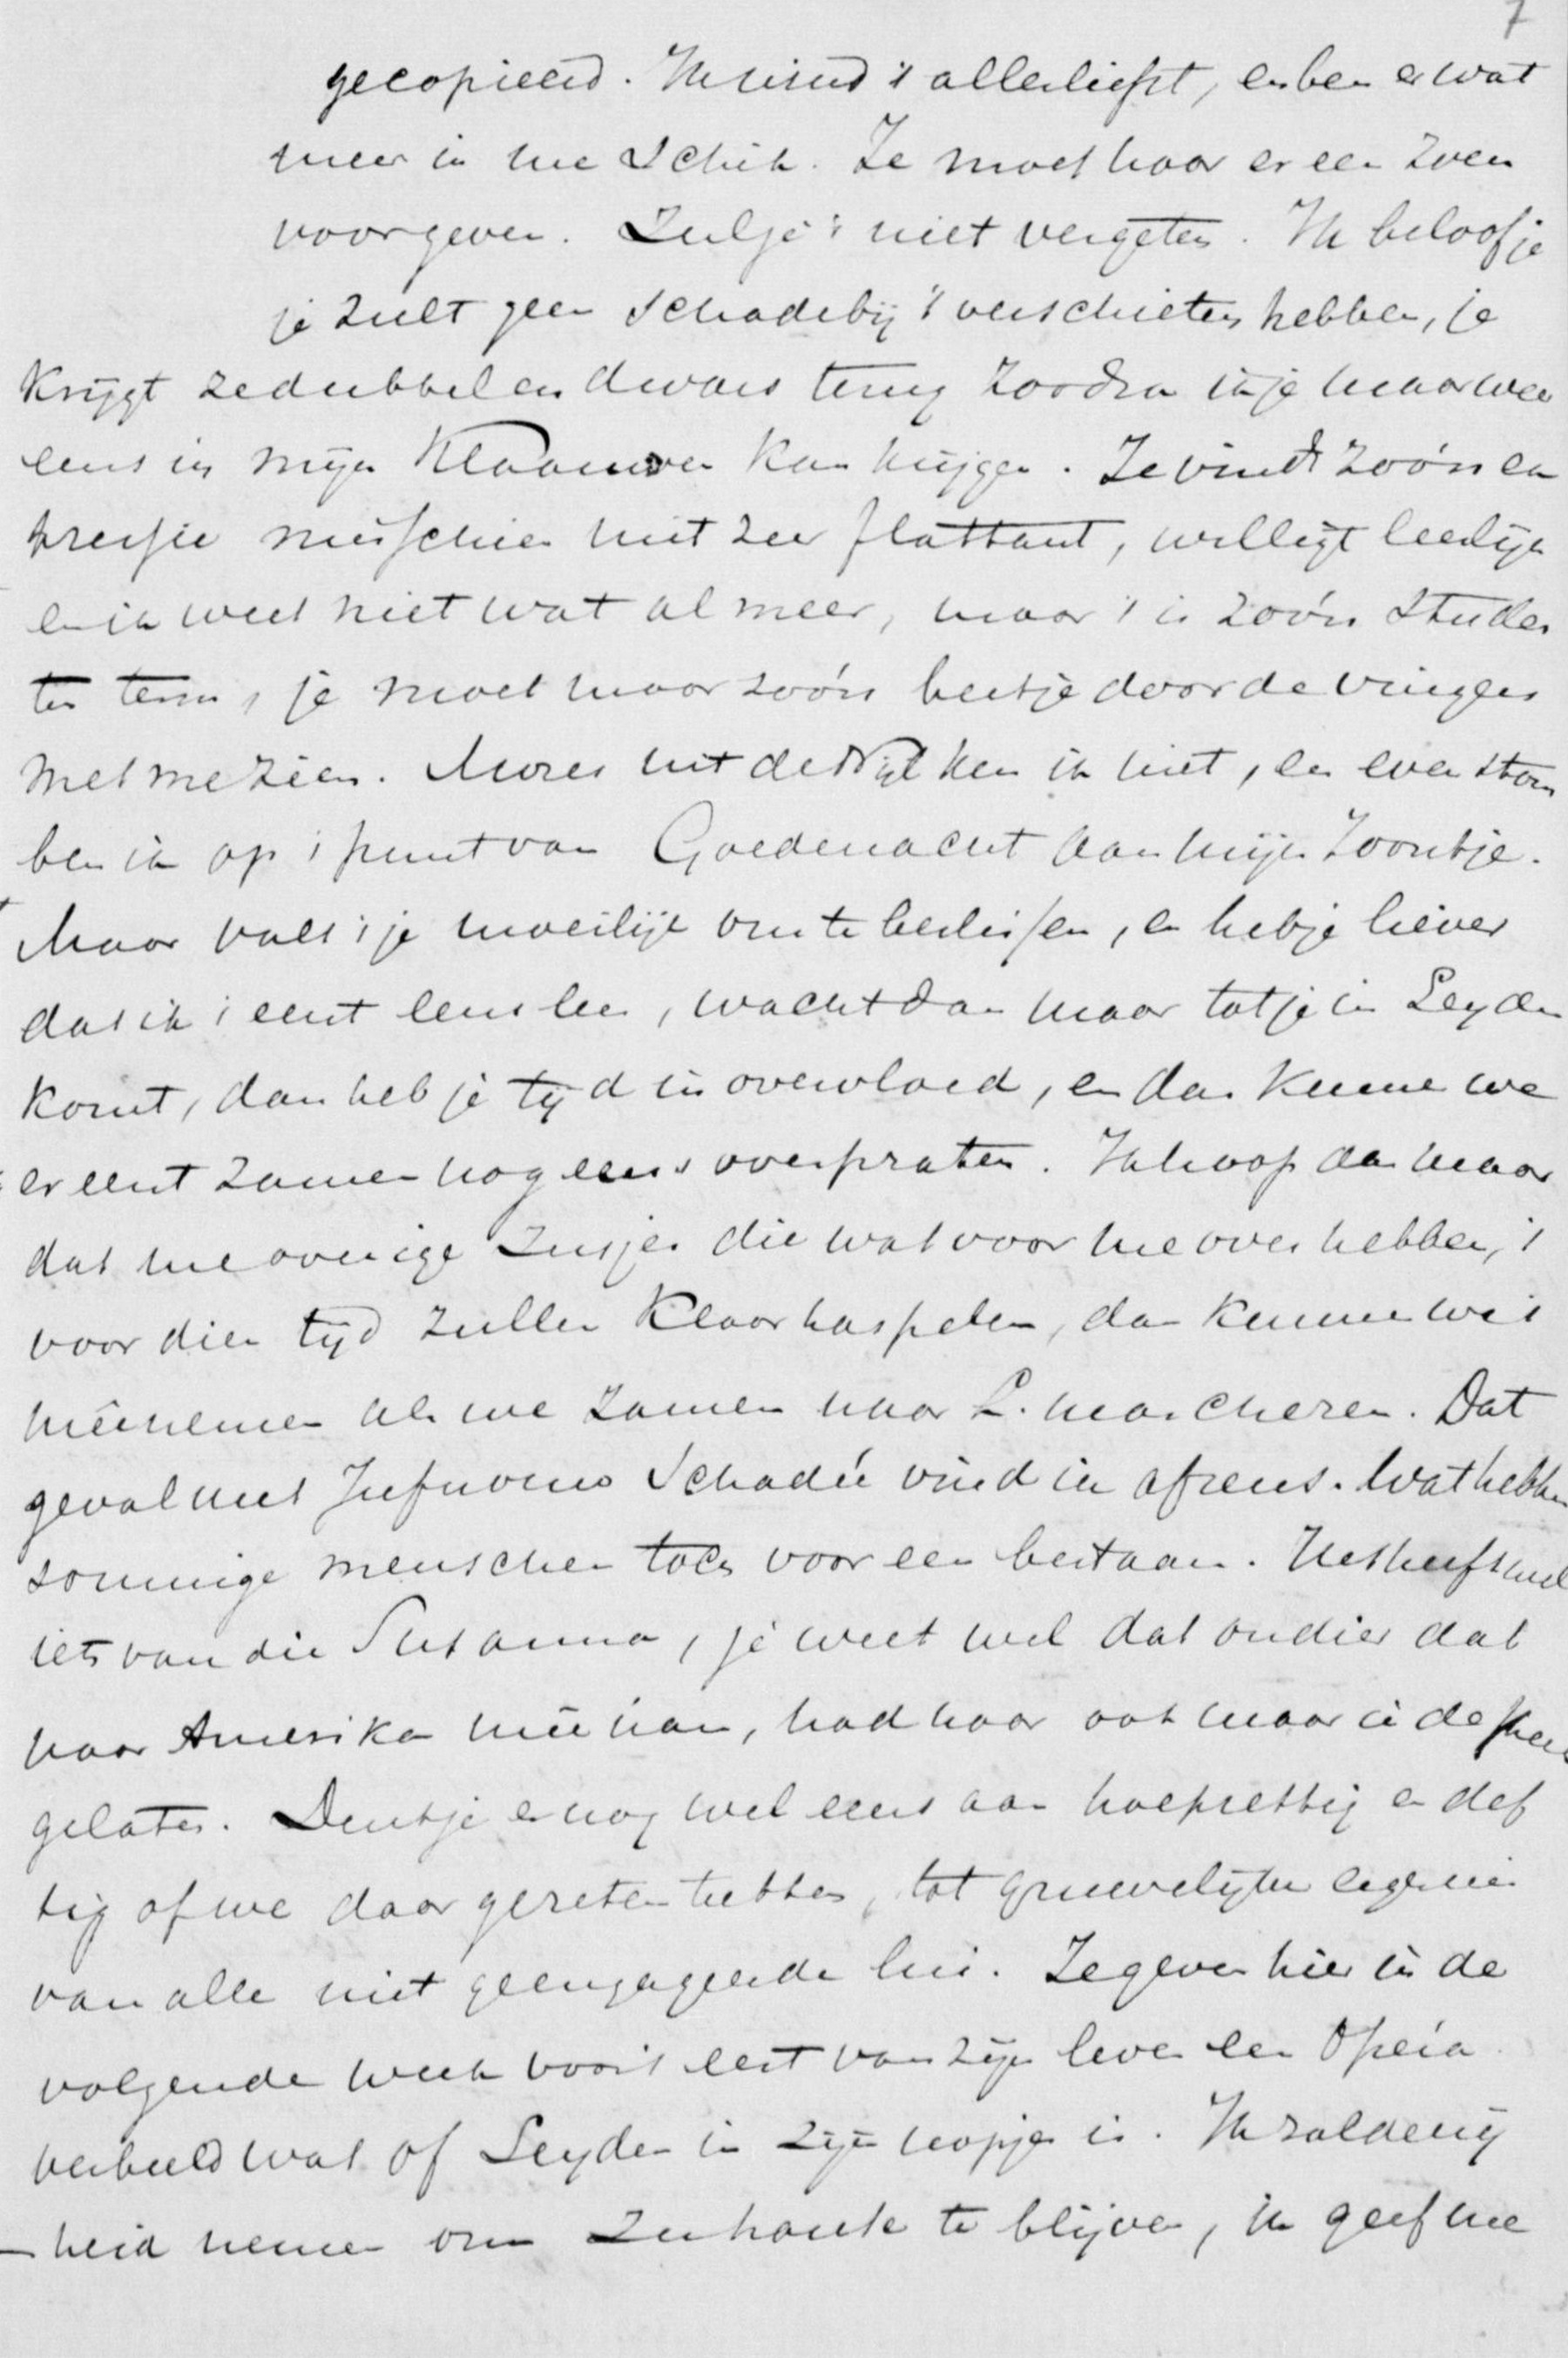 7
gecopieerd. Ik vind 't allerliefst, en ben er wat
meer in me schik. Je moet haar er een zoen
voor geven. Zulje 't niet vergeten. Ik beloof je
je zult geen schade bij 't verschieten hebben, je
krijgt ze dubbel en dwars terug zoodra ik je maar weer
eens in mijn klaauwen kan krijgen. Je vindt zoo'n ex
pressie misschien niet zeer flattant, welligt leelijk
en ik weet niet wat al meer, maar 't is zoo'n studen
ten term, je moet maar zoo'n beetje door de vingers
met me zien. Mozes uit de Nijl ken ik niet, en even stom
ben ik op 't punt van Goedenacht aan mijn Zoontje.
Maar valt 't je moeilijk om te beslissen, en heb je liever
dat ik 't eerst eens lees, wacht dan maar tot je in Leyden
komt, dan heb je tijd in overvloed, en dan kunnen we
er eerst zamen nog eens over praten. Ik hoop dan maar
dat me overige zusjes die wat voor me over hebben, 't
voor dien tijd zullen klaar haspelen, dan kunnen we 't
meênemen als we zamen naar L. marcheren. Dat
geval met Jufvrouw Schadée vind ik afreus. Wat hebben
sommige menschen toch voor een bestaan. Het heeft wel
iets van die Susanna, je weet wel dat ondier dat
naar Amerika meê kan, had haar ook maar in de
gelaten. Denk je er nog wel eens aan hoe prettig en def
tig of we daar gezeten hebben, tot gruwelijke ergernis
van alle niet geengageerde lui. Ze geven hier in de
volgende week voor 't eerst van zijn leven een Opera
verbeeld wat of Leyden in zijn knopjes is. Ik zal de vrij
heid nemen om zuhause te blijven, ik geef me